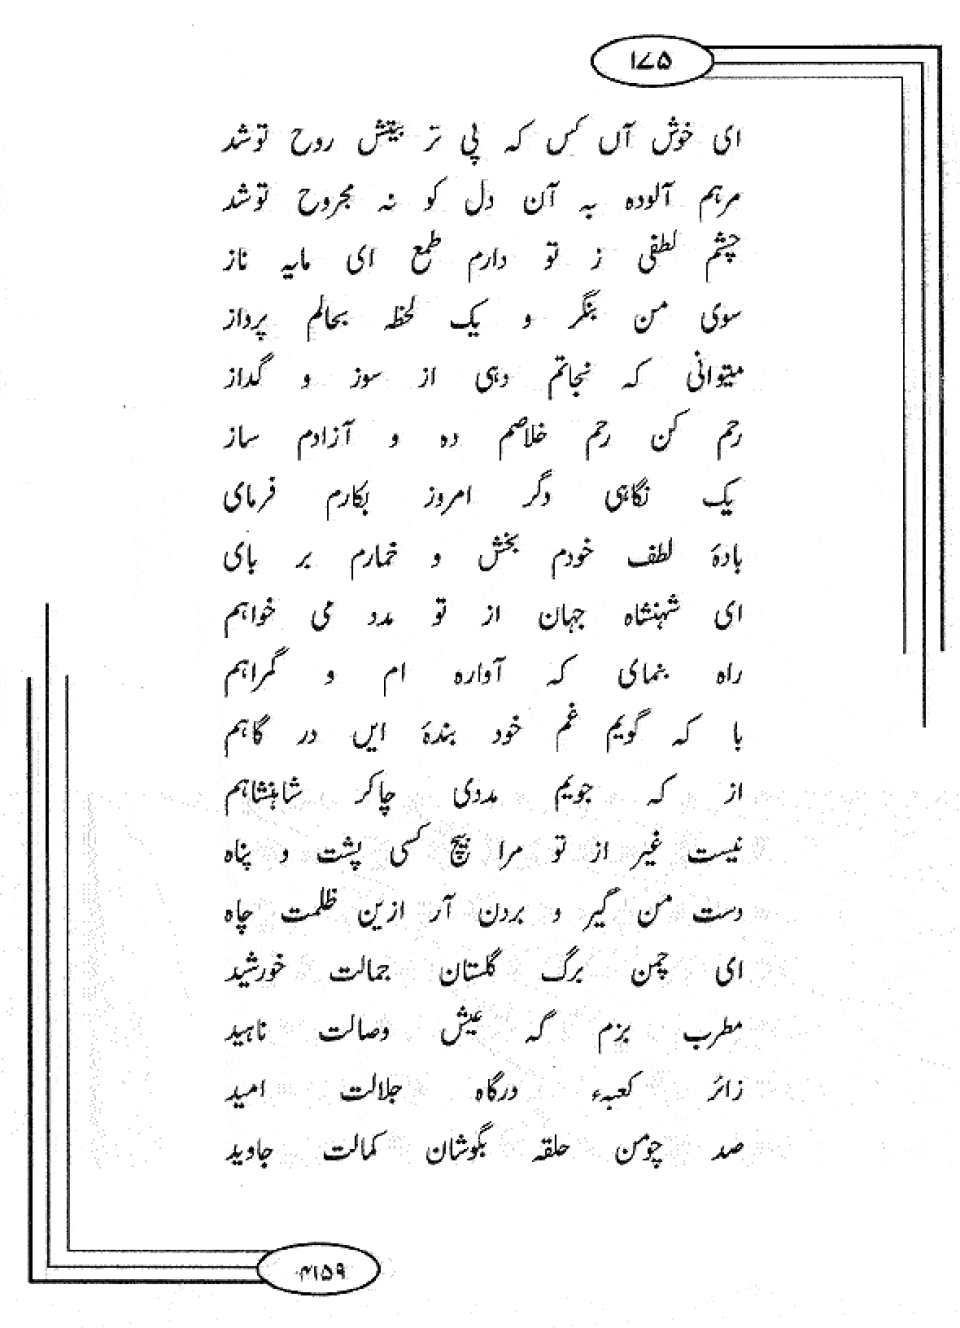 ۱۷۵
ای خوش آں کس کہ پی تر بیتش روح تو شد
مرہم آلودہ بہ آن دل کو نہ مجروح تو شد
چشم لطفی ز تو دارم طمع ای مایہ ناز
سوی من بنگر و یک لحظہ بحالم پرداز
میتوانی کہ نجاتم دہی از سوز و گداز
رحم کن رحم خلاصم دہ و آزادم ساز
یک نگاہی دگر امروز بکارم فرمای
بادۂ لطف خودم بخش و خمارم بر بای
ای شہنشاہ جہان از تو مدد می خواہم
راہ بنمای کہ آوارہ ام و گمراہم
با کہ گویم غم خود بندۂ ایں در گاہم
از کہ جویم مددی چاکر شاہنشاہم
نیست غیر از تو مرا ہیچ کسی پشت و پناہ
دست من گیر و بردن آر ازین ظلمت چاہ
ای چمن برگ گلستان جمالت خورشید
مطرب بزم گہ عیش وصالت ناہید
زائر کعبہء درگاہ جلالت امید
صد چومن حلقہ بگوشان کمالت جاوید
۴۱۵۹